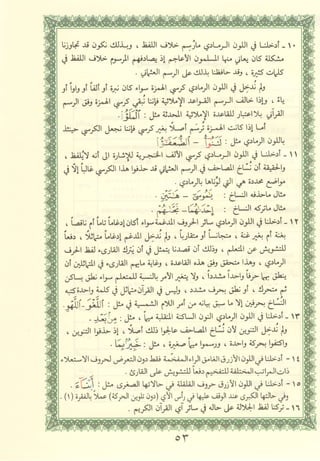 ١٠ - أدخلنا في اللون الرمادي مارُسِم خلاف اللفظ ، وبذلك نكون قد تجاوزنا
مشكلة كان يعاني منها المسلمون الأعاجم إذ يصادفهم المرسوم خلاف اللفظ في
كلمات كثيرة ، وقد حافظنا بذلك على الرسم العثماني .
ولم نُدخِل في اللون الرمادي كرسي الهمزة سواء كان نبرة أو ألفاً أو واواً أو
ياءً ، وإذا خالف الرسم القواعد الإملائية فإننا نُبقي كرسي الهمزة وفق الرسم
القرآني بلا اعتبار للقاعدة الإملائية المحدثة مثل :
أما إذا كانت الهمزة تُرسَم أصلاً بغير كرسي فإننا نجعل الكرسي حينئذ
باللون الرمادي مثل :
١١ - أدخلنا في اللون الرمادي كرسي الألف الخنجرية للإشارة إلى أنه لا يُلفظ ،
والحقيقة أن نُسَّاخ المصاحف في الرسم العثماني قد حذفوا هذا الكرسي غالباً إلا في
مواضع محددة هي التي لوّناها بالرمادي .
مثال ماحذفه النساخ :
مثال ماتركه النساخ :
١٢ - أدخلنا في اللون الرمادي سائر الحروف المدغمة سواء أكان إدغاماً تاماً أم ناقصاً ،
بغنة أم بغير غنة ، متجانساً أو متقارباً ، ولم نُدخل المدغم إدغاماً متماثلاً ، دفعاً
للتشويش عن المتعلم ، وذلك أن قصدنا يتمثل في أن يترك القارىء لفظ الحرف
الرمادي ، وهذا متحقق وفق هذه القاعدة ، وغاية مايهم القارىء في المتماثلين أن
ينطق بهما حرفاً واحداً مشدداً ، ولا يتغير الأمر بالنسبة للمتعلم سواء نطق بساكن
ثم متحرك ، أو نطق بحرف مشدد ، وليس في القرآن متماثل في كلمة واحدة كتبه
النساخ بحرفين إلا ما سبق بيانه من أمر اللام الشمسية في مثل :
١٣ - أدخلنا في اللون الرمادي النون الساكنة المنقلبة ميماً ، مثل :
ولم ندخل التنوين لأن نُساخ المصاحف عالجوا ذلك أصلاً ، إذ حذفوا التنوين ،
واكتفوا بحركة واحدة ، ورسموا ميماً صغيرة ، مثل :
١٤ - أدخلنا في اللون الأزرق الغامق الراء المفخمة فقط دون التعرض لحروف الاستعلاء
ذات المراتب المختلفة للتفخيم دفعاً للتشويش على القارئ .
١٥ - أدخلنا في اللون الأزرق حروف القلقلة في حالاتها الصغرى مثل :
وفي حالتها الكبرى عند الوقف عليها في رأس الآي (دون تلوين الحركة) عملاً بالفقرة (١) .
١٦ - تركنا لفظ الجلالة على حاله في سائر آي القرآن الكريم .
٥٣